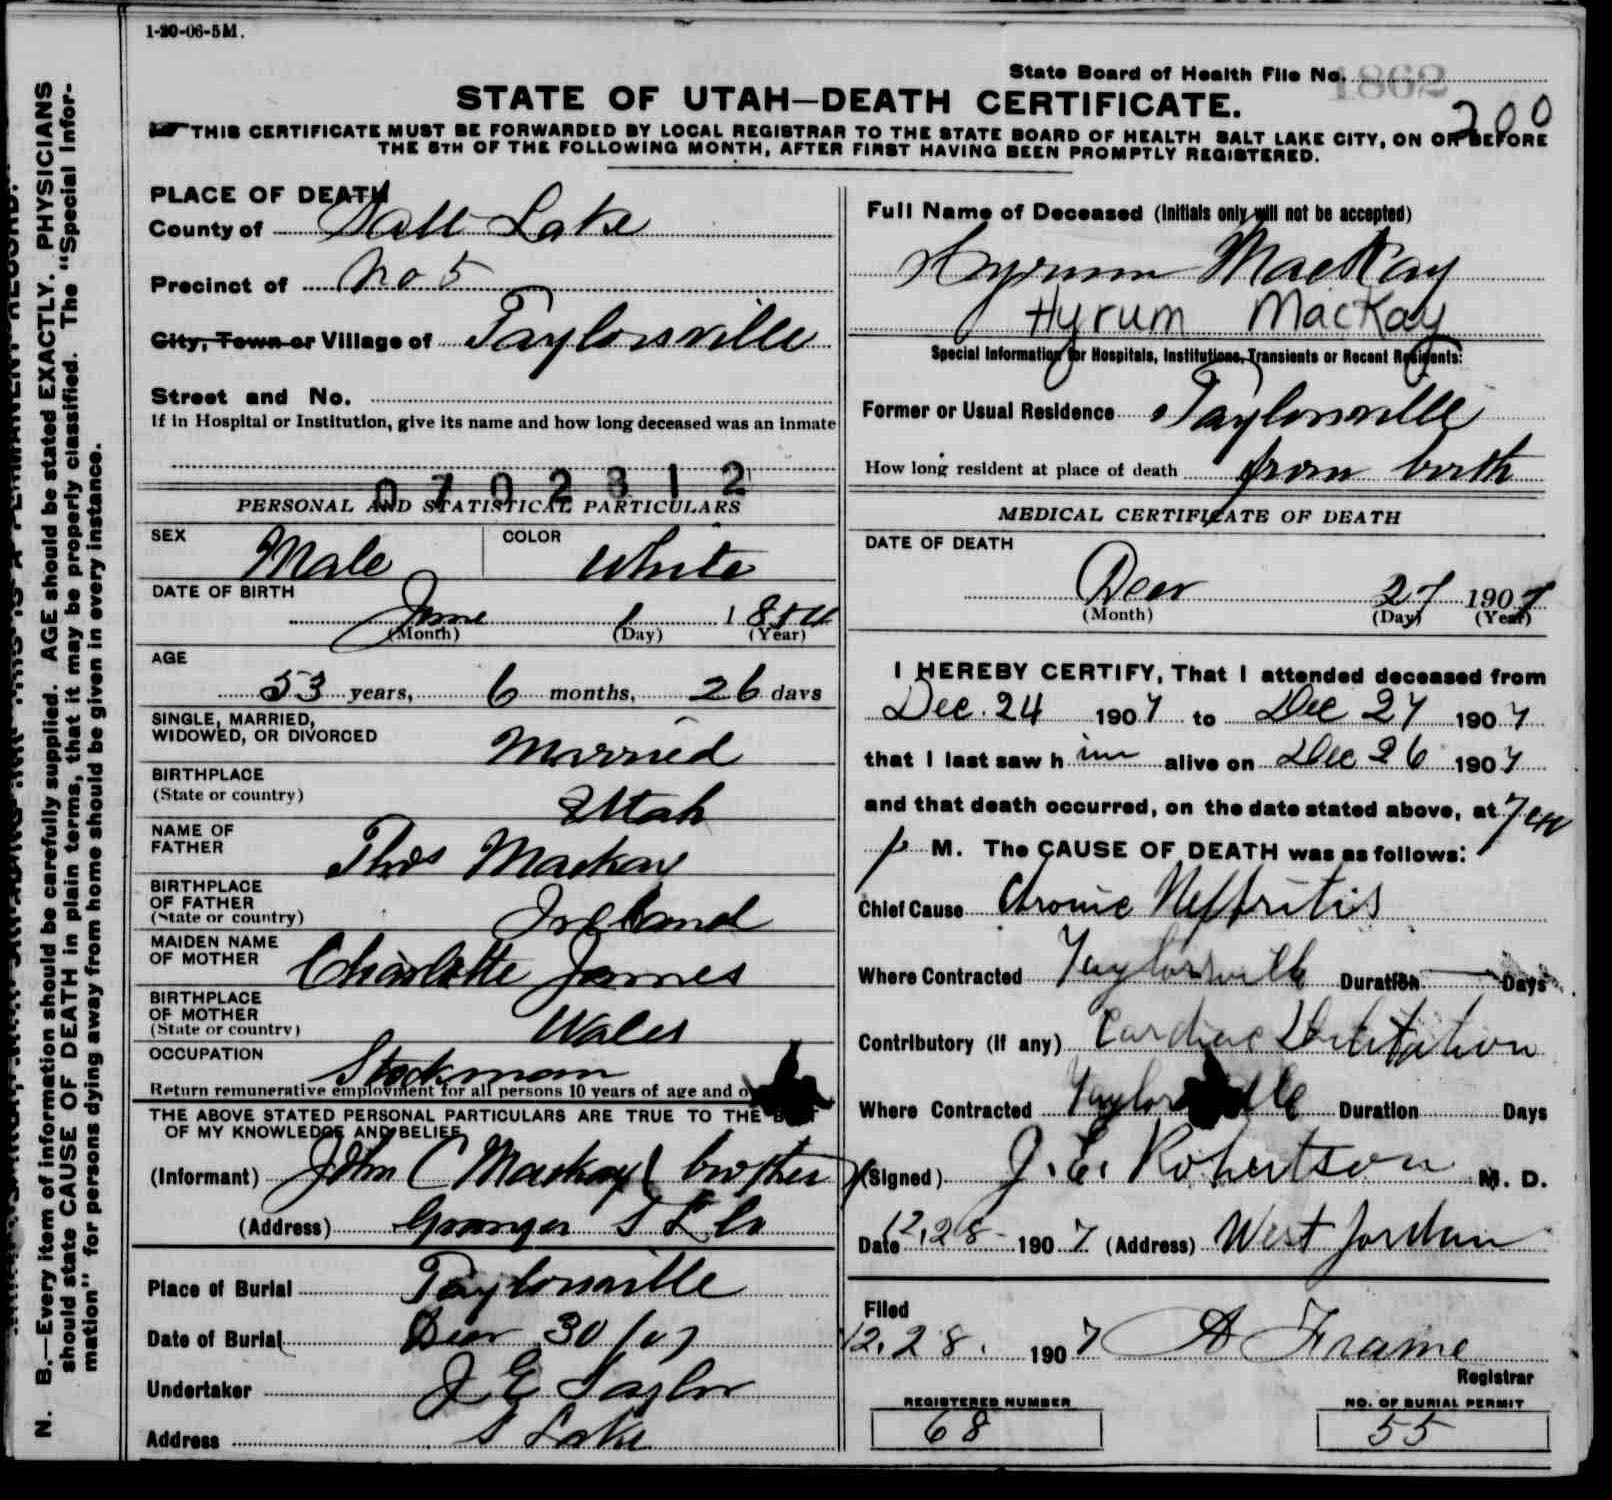 1-20-06-5M.
State Board of Health File No. 1862
200
STATE OF UTAH—DEATH CERTIFICATE.
THIS CERTIFICATE MUST BE FORWARDED BY LOCAL REGISTRAR TO THE STATE BOARD OF HEALTH SALT LAKE CITY, ON OR BEFORE
THE 5TH OF THE FOLLOWING MONTH, AFTER FIRST HAVING BEEN PROMPTLY REGISTERED.
N. B.—Every item of information should be carefully supplied. AGE should be stated EXACTLY. PHYSICIANS
should state CAUSE OF DEATH in plain terms, that it may be properly classified. The "Special Infor-
mation" for persons dying away from home should be given in every instance.
PLACE OF DEATH
County of Salt Lake
Precinct of No 5
City, Town or Village of Taylorsville
Street and No.
If in Hospital or Institution, give its name and how long deceased was an inmate
0702312
PERSONAL AND STATISTICAL PARTICULARS
SEX Male COLOR White
DATE OF BIRTH
June 1 1854
(Month) (Day) (Year)
AGE
53 years, 6 months, 26 days
SINGLE, MARRIED,
WIDOWED, OR DIVORCED Married
BIRTHPLACE
(State or country) Utah
NAME OF
FATHER Thos Mackay
BIRTHPLACE
OF FATHER
(State or country) Ireland
MAIDEN NAME
OF MOTHER Charlotte James
BIRTHPLACE
OF MOTHER
(State or country) Wales
OCCUPATION Stockman
Return remunerative employment for all persons 10 years of age and
THE ABOVE STATED PERSONAL PARTICULARS ARE TRUE TO THE BEST
OF MY KNOWLEDGE AND BELIEF
(Informant) John C Mackay (brother)
(Address) Granger S L Co
Place of Burial Taylorsville
Date of Burial Decr 30/07
Undertaker J E Taylor
Address S Lake
Full Name of Deceased (Initials only will not be accepted)
Hyrum MacKay
Hyrum MacKay
Special Information for Hospitals, Institutions, Transients or Recent Residents:
Former or Usual Residence Taylorsville
How long resident at place of death from birth
MEDICAL CERTIFICATE OF DEATH
DATE OF DEATH
Decr 27 1907
(Month) (Day) (Year)
I HEREBY CERTIFY, That I attended deceased from
Dec. 24 1907 to Dec 27 1907
that I last saw him alive on Dec 26 1907
and that death occurred, on the date stated above, at 7
p M. The CAUSE OF DEATH was as follows:
Chief Cause Cronic Neffritis
Where Contracted Taylorsville Duration Days
Contributory (if any) Cardiac Dilitation
Where Contracted Taylorsville Duration Days
(Signed) J. E. Robertson M. D.
Date 12.28- 1907 (Address) West Jordan
Filed
12.28. 1907 A Frame
Registrar
REGISTERED NUMBER
68
NO. OF BURIAL PERMIT
55